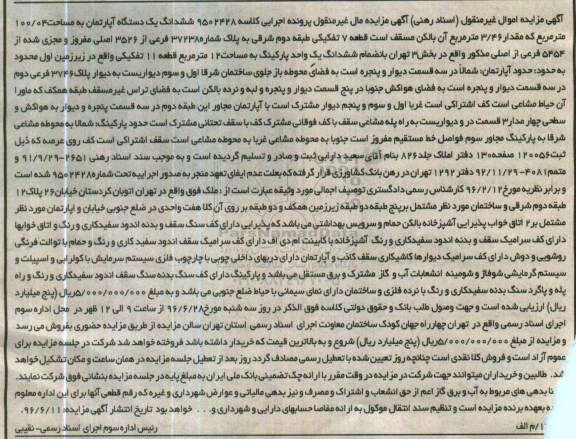 آگهی مزایده اموال غیرمنقول (اسناد رهنی) آگهی مزایده مال غیرمنقول پرونده اجرایی کلاسه ۹۵۰۲۴۲۸ ششدانگ یک دستگاه آپارتمان به مساحت ۱۰۰/۰۴
مترمربع که مقدار ۳/۴۶ مترمربع آن بالکن مسقف است قطعه ۷ تفکیکی طبقه دوم شرقی به پلاک شماره ۳۷۲۳۸ فرعی از ۳۵۲۶ اصلی مفروز و مجزی شده از
۵۴۵۴ فرعی از اصلی مذکور واقع در بخش ۳ تهران بانضمام ششدانگ یک واحد پارکینگ به مساحت ۱۲ مترمربع قطعه ۱۱ تفکیکی واقع در زیرزمین اول محدود
به حدود: حدود آپارتمان: شمالا در سه قسمت دیوار و پنجره است به فضای محوطه باز جلوی ساختمان شرقا اول و سوم دیواریست به دیوار پلاک ۳۷۴۶ فرعی دوم
در سه قسمت دیوار و پنجره است به فضای هواکش جنوبا در پنج قسمت دیوار و پنجره و لبه و نرده بالکن است به فضای تراس غیرمسقف طبقه همکف که ماورا
آن حیاط مشاعی است کف اشتراکی است غربا اول و سوم و پنجم دیوار مشترک است با آپارتمان مجاور این طبقه دوم در سه قسمت پنجره و دیوار به هواکش و
سطحی چهار مدار ۳ قسمت در و دیواریست به راه پله مشاعی سقف با کف فوقانی مشترک کف با سقف تحتانی مشترک است حدود پارکینگ: شمالا به محوطه مشاعی
شرقا به پارکینگ مجاور سوم فواصل خط مستقیم مفروز است جنوبا به محوطه مشاعی غربا به محوطه مشاعی است سقف اشتراکی است کف روی عرصه که ذیل
ثبت ۱۲۰۰۵۶ صفحه ۱۳۰ دفتر املاک جلد ۸۲۶ بنام آقای سعید دارابی ثبت و صادر و تسلیم گردیده است و به موجب سند اسناد رهنی ۲۶۵۱-۹۱/۹/۲۹ و
متمم ۴۰۸۱-۹۲/۱۱/۲۹ دفتر ۱۲۹۲ تهران در رهن بانک کشاورزی قرار گرفته که بعلت عدم ایفای تعهد منجر به صدور اجراییه تحت شماره ۹۵۰۲۴۲۸ شده است
و برابر نظریه مورخ ۹۶/۲/۱۲ کارشناس رسمی دادگستری توصیف اجمالی مورد وثیقه عبارت است از: ملک فوق واقع در تهران اتوبان کردستان خیابان ۲۶ پلاک ۱۲
طبقه دوم شرقی و ساختمان مورد نظر مشتمل بر پنج طبقه دو طبقه زیرزمین همکف و دو طبقه بر روی آن کلا هفت واحدی در ضلع جنوبی خیابان و آپارتمان مورد نظر
مشتمل بر ۲ اتاق خواب پذیرایی آشپزخانه بالکن حمام و سرویس بهداشتی می باشد که پذیرایی دارای کف سنگ سقف و بدنه اندود سفیدکاری و رنگ و اتاق خوابها
دارای کف سرامیک سقف و بدنه اندود سفیدکاری و رنگ آشپزخانه با کابینت ام دی اف دارای کف سرامیک سقف اندود سفید کاری و رنگ و حمام با توالت فرنگی
روشویی و دوش دارای کف سرامیک دیوارها کاشیکاری سقف کاذب و آپارتمان دارای دربهای داخلی چوبی با چارچوب فلزی سیستم سرمایش با کولر آبی و اسپیلت و
سیستم گرمایشی شوفاژ و شومینه انشعابات آب و گاز مشترک و برق مستقل می باشد و پارکینگ دارای کف سنگ بدنه سنگ سقف اندود سفیدکاری و رنگ و راه
پله و پاگرد سنگ بدنه سفیدکاری و رنگ با نرده فلزی و ساختمان دارای نمای سیمانی با حیاط ضلع جنوبی می باشد و به مبلغ ۵/۰۰۰/۰۰۰/۰۰۰ریال (پنج میلیارد
ریال) ارزیابی شده است و جهت وصول طلب بانک و حقوق دولتی کلاسه فوق الذکر در روز سه شنبه مورخ ۹۶/۶/۲۸ از ساعت ۹ الی ۱۲ ظهر در محل اداره سوم
اجرای اسناد رسمی واقع در تهران چهارراه جهان کودک ساختمان معاونت اجرای اسناد رسمی استان تهران سالن مزایده از طریق مزایده حضوری بفروش می رسد
و مزایده از مبلغ ۵/۰۰۰/۰۰۰/۰۰۰ریال (پنج میلیارد ریال) شروع و به بالاترین قیمت که خریدار داشته باشد فروخته خواهد شد شرکت در جلسه مزایده برای
عموم آزاد است و فروش کلا نقدی است چنانچه روز تعیین شده با تعطیل رسمی مصادف گردد روز بعد از تعطیل جلسه مزایده در همان ساعت و مکان تشکیل خواهد
شد. طالبین و خریداران میتوانند جهت شرکت در مزایده در وقت مقرر با ارائه چک تضمینی بانک ملی ایران به مبلغ پایه در جلسه مزایده بنشانی فوق شرکت نمایند.
بدهی های مربوط به آب و برق گاز اعم از حق انشعاب و اشتراک و مصرف و نیز بدهی مالیاتی و عوارض شهرداری و غیره که رقم قطعی آنها برای این اداره معلوم
بعهده برنده مزایده است و تنظیم سند انتقال موکول به ارائه مفاصا حسابهای دارایی و شهرداری و ... خواهد بود تاریخ انتشار آگهی مزایده: ۹۶/۶/۱۱.
م الف رئیس اداره سوم اجرای اسناد رسمی- نقیبی